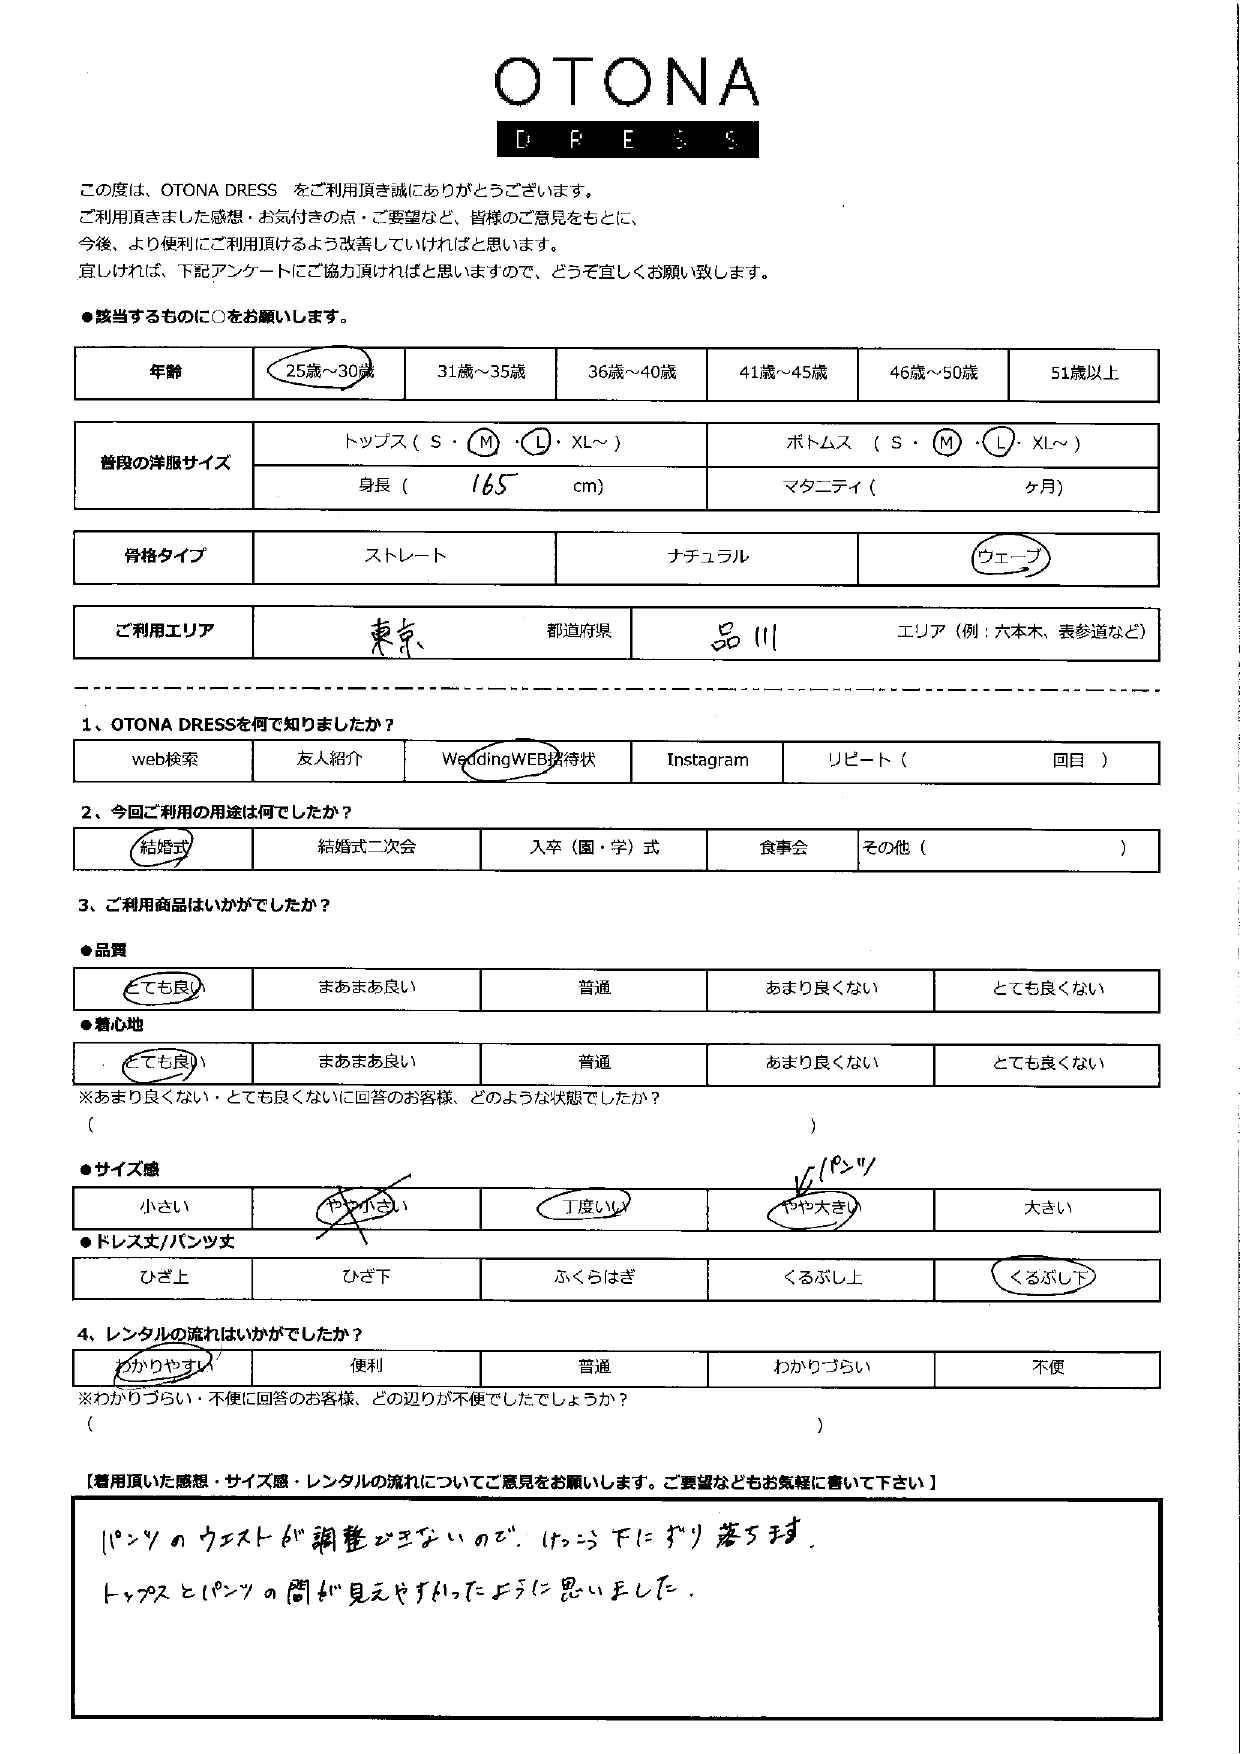 OTONA
DRESS
この度は、OTONA DRESS をご利用頂き誠にありがとうございます。
ご利用頂きました感想・お気付きの点・ご要望など、皆様のご意見をもとに、
今後、より便利にご利用頂けるよう改善していければと思います。
宜しければ、下記アンケートにご協力頂ければと思いますので、どうぞ宜しくお願い致します。
●該当するものに○をお願いします。
年齢 25歳～30歳 31歳～35歳 36歳～40歳 41歳～45歳 46歳～50歳 51歳以上
普段の洋服サイズ トップス ( S ・ M ・ L ・ XL～ ) ボトムス ( S ・ M ・ L ・ XL～ )
身長 ( 165 cm) マタニティ ( ヶ月)
骨格タイプ ストレート ナチュラル ウェーブ
ご利用エリア 東京 都道府県 品川 エリア（例：六本木、表参道など）
1、OTONA DRESSを何で知りましたか？
web検索 友人紹介 WeddingWEB招待状 Instagram リピート（ 回目 ）
2、今回ご利用の用途は何でしたか？
結婚式 結婚式二次会 入卒（園・学）式 食事会 その他（ ）
3、ご利用商品はいかがでしたか？
●品質
とても良い まあまあ良い 普通 あまり良くない とても良くない
●着心地
とても良い まあまあ良い 普通 あまり良くない とても良くない
※あまり良くない・とても良くないに回答のお客様、どのような状態でしたか？
（ ）
●サイズ感
パンツ
小さい やや小さい 丁度いい やや大きい 大きい
●ドレス丈/パンツ丈
ひざ上 ひざ下 ふくらはぎ くるぶし上 くるぶし下
4、レンタルの流れはいかがでしたか？
わかりやすい 便利 普通 わかりづらい 不便
※わかりづらい・不便に回答のお客様、どの辺りが不便でしたでしょうか？
（ ）
【着用頂いた感想・サイズ感・レンタルの流れについてご意見をお願いします。ご要望などもお気軽に書いて下さい 】
パンツのウエストが調整できないので、けっこう下にずり落ちます。
トップスとパンツの間が見えやすかったように思いました。